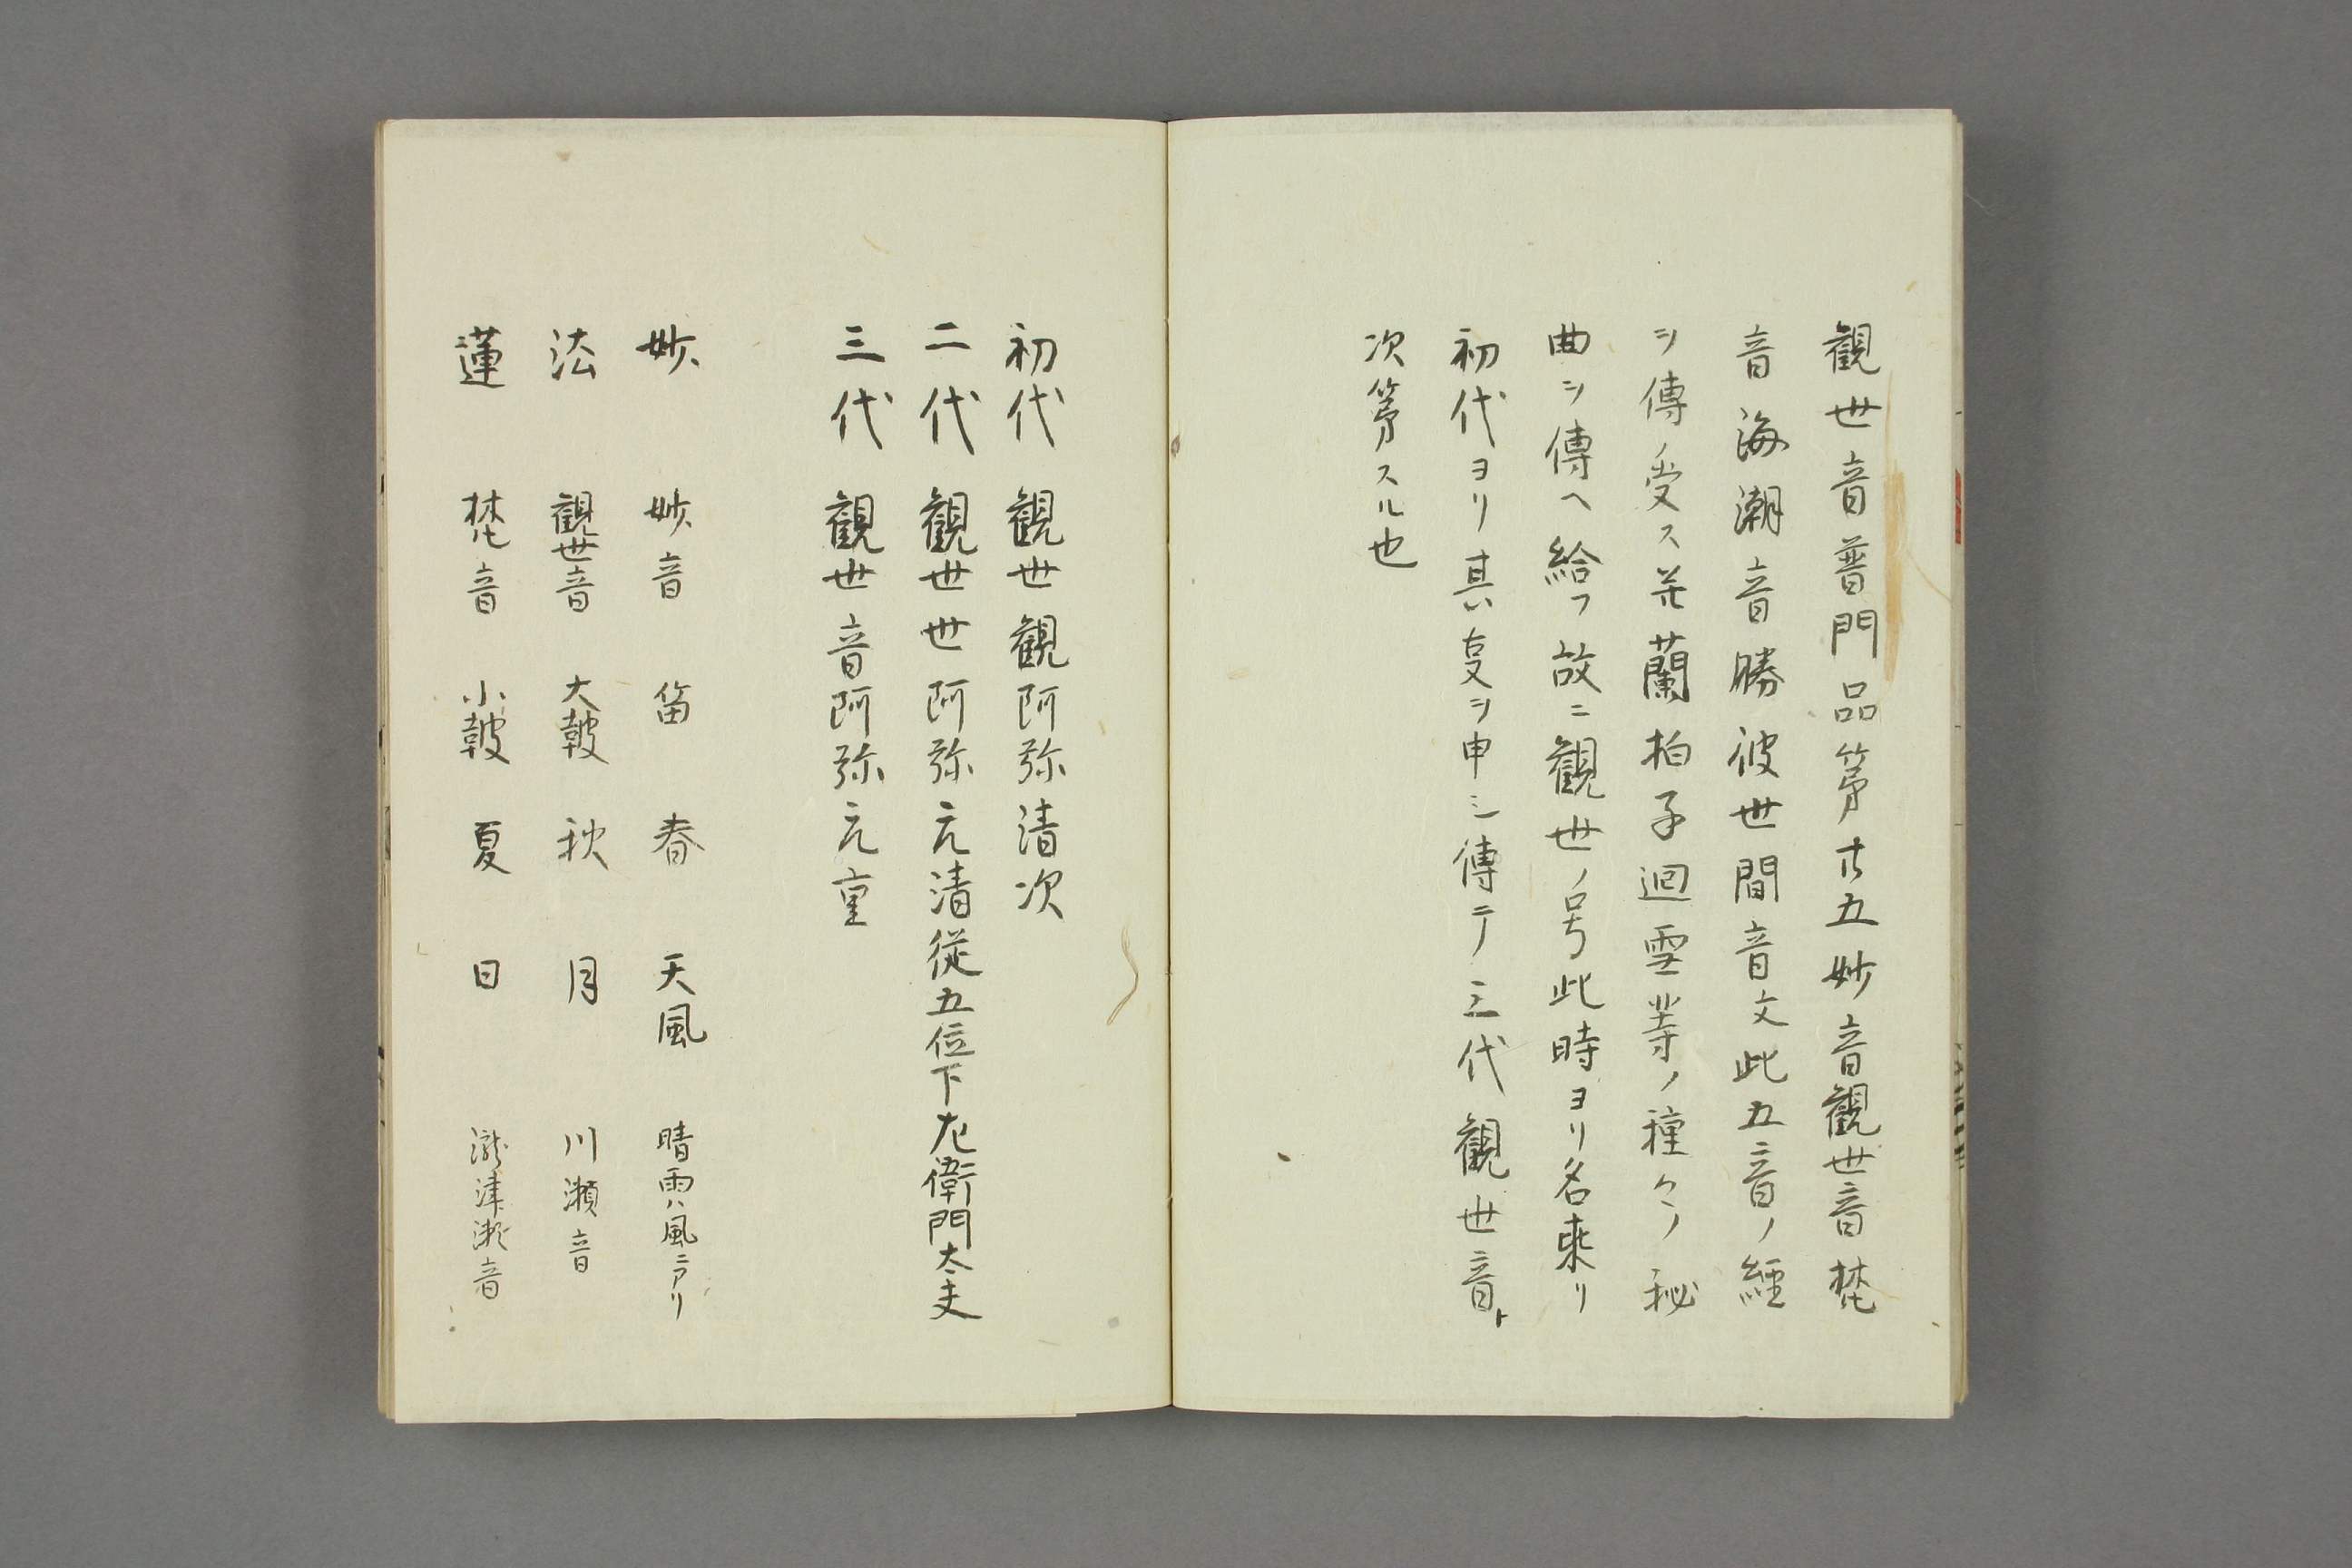 観世音普門品第廿五妙音観世音梵
音海潮音勝彼世間音文此五音ノ經
ヲ傳ノ受ス并蘭拍子廻雪等ノ種々ノ秘
曲ヲ傳ヘ給フ故ニ観世ノ号此時ヨリ名乘リ
初代ヨリ其㕝ヲ申シ傳テ三代観世音ト
次第スル也
初代 観世観阿弥清次
二代 観世世阿弥元清従五位下左衛門大夫
三代 観世音阿弥元重
妙 妙音 笛 春 天風 晴雨ハ風ニアリ
法 観世音 大皷 秋 月 川瀬音
蓮 梵音 小皷 夏 日 瀧津瀬音